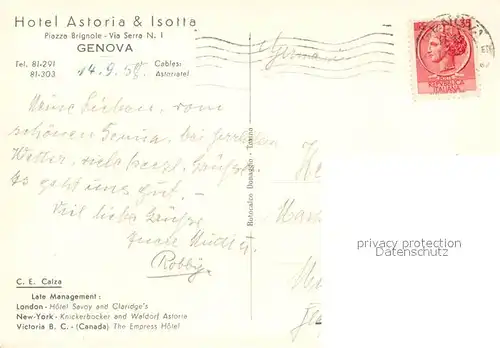 Hotel Astoria & Isotta
Piazza Brignole - Via Serra N. 1
GENOVA
Tel. 81-291
81-303
Cables:
Astoriatel
14.9.58
Germania
GENOVA
REPUBBLICA
ITALIANA
Meine Lieben, vom
schönen Genua, bei herrlichem
Wetter, viele herzl. Grüsse.
Es geht uns gut. -
Viel liebe Grüsse
Eure Mutti u.
Robby.
Rotocalco Dagnino - Torino
privacy protection
Datenschutz
C. E. Calza
Late Management:
London - Hôtel Savoy and Claridge's
New-York - Knickerbocker and Waldorf Astoria
Victoria B. C. - (Canada) The Empress Hôtel